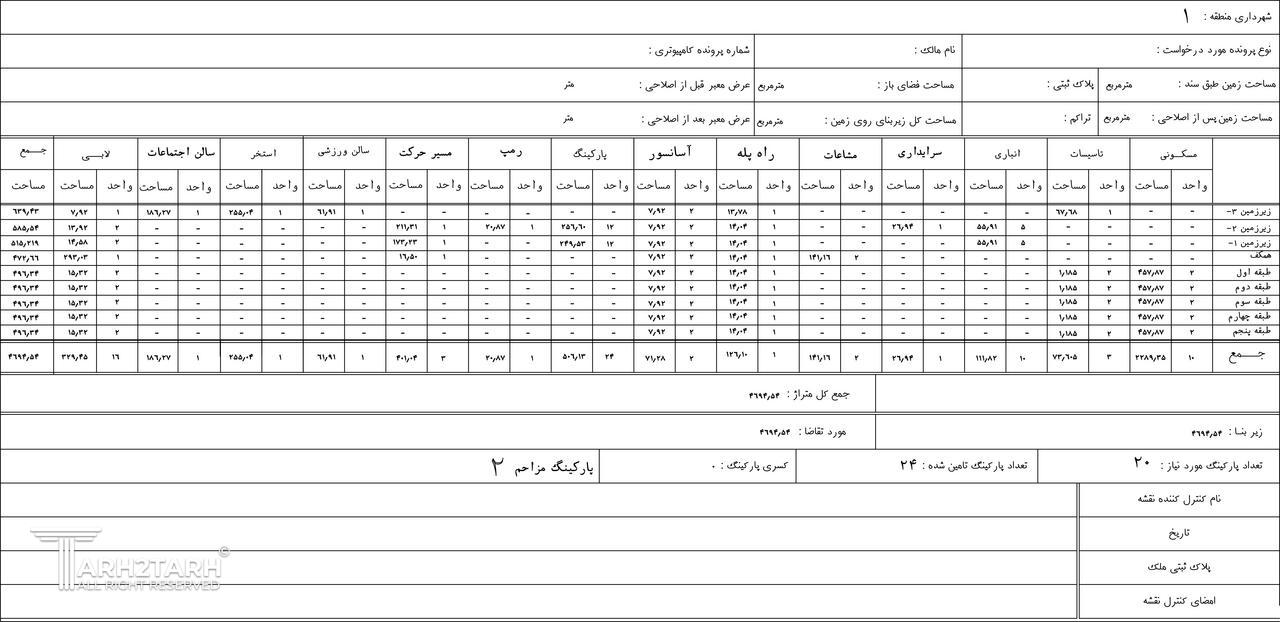 شهرداری منطقه : ۱
نوع پرونده مورد درخواست : نام مالک : شماره پرونده کامپیوتری :
مساحت زمین طبق سند : مترمربع پلاک ثبتی : مساحت فضای باز : مترمربع عرض معبر قبل از اصلاحی : متر
مساحت زمین پس از اصلاحی : مترمربع تراکم : مساحت کل زیربنای روی زمین : مترمربع عرض معبر بعد از اصلاحی : متر
مسکونی تاسیسات انباری سرایداری مشاعات راه پله آسانسور پارکینگ رمپ مسیر حرکت سالن ورزشی استخر سالن اجتماعات لابی جمع
واحد مساحت واحد مساحت واحد مساحت واحد مساحت واحد مساحت واحد مساحت واحد مساحت واحد مساحت واحد مساحت واحد مساحت واحد مساحت واحد مساحت واحد مساحت واحد مساحت مساحت
زیرزمین ۳- - - ۱ ۶۷٫۶۸ - - - - - - ۱ ۱۳٫۷۸ ۲ ۷٫۹۲ - - - - - - ۱ ۶۱٫۹۱ ۱ ۲۵۵٫۰۴ ۱ ۱۸۶٫۲۷ ۱ ۷٫۹۲ ۶۳۹٫۴۳
زیرزمین ۲- - - - - ۵ ۵۵٫۹۱ ۱ ۲۶٫۹۴ - - ۱ ۱۴٫۰۴ ۲ ۷٫۹۲ ۱۲ ۲۵۶٫۶۰ ۱ ۲۰٫۸۷ ۱ ۲۱۱٫۳۱ - - - - - - ۲ ۱۳٫۹۲ ۵۸۵٫۵۴
زیرزمین ۱- - - - - ۵ ۵۵٫۹۱ - - - - ۱ ۱۴٫۰۴ ۲ ۷٫۹۲ ۱۲ ۲۴۹٫۵۳ - - ۱ ۱۷۳٫۲۳ - - - - - - ۲ ۱۴٫۵۸ ۵۱۵٫۲۱۹
همکف - - - - - - - - ۲ ۱۴۱٫۱۶ ۱ ۱۴٫۰۴ ۲ ۷٫۹۲ - - - - ۱ ۱۶٫۵۰ - - - - - - ۱ ۲۹۳٫۰۳ ۴۷۲٫۶۶
طبقه اول ۲ ۴۵۷٫۸۷ ۲ ۱٫۱۸۵ - - - - - - ۱ ۱۴٫۰۴ ۲ ۷٫۹۲ - - - - - - - - - - - - ۲ ۱۵٫۳۲ ۴۹۶٫۳۴
طبقه دوم ۲ ۴۵۷٫۸۷ ۲ ۱٫۱۸۵ - - - - - - ۱ ۱۴٫۰۴ ۲ ۷٫۹۲ - - - - - - - - - - - - ۲ ۱۵٫۳۲ ۴۹۶٫۳۴
طبقه سوم ۲ ۴۵۷٫۸۷ ۲ ۱٫۱۸۵ - - - - - - ۱ ۱۴٫۰۴ ۲ ۷٫۹۲ - - - - - - - - - - - - ۲ ۱۵٫۳۲ ۴۹۶٫۳۴
طبقه چهارم ۲ ۴۵۷٫۸۷ ۲ ۱٫۱۸۵ - - - - - - ۱ ۱۴٫۰۴ ۲ ۷٫۹۲ - - - - - - - - - - - - ۲ ۱۵٫۳۲ ۴۹۶٫۳۴
طبقه پنجم ۲ ۴۵۷٫۸۷ ۲ ۱٫۱۸۵ - - - - - - ۱ ۱۴٫۰۴ ۲ ۷٫۹۲ - - - - - - - - - - - - ۲ ۱۵٫۳۲ ۴۹۶٫۳۴
جمع ۱۰ ۲۲۸۹٫۳۵ ۳ ۷۳٫۶۰۵ ۱۰ ۱۱۱٫۸۲ ۱ ۲۶٫۹۴ ۲ ۱۴۱٫۱۶ ۱ ۱۲۶٫۱۰ ۲ ۷۱٫۲۸ ۲۴ ۵۰۶٫۱۳ ۱ ۲۰٫۸۷ ۳ ۴۰۱٫۰۴ ۱ ۶۱٫۹۱ ۱ ۲۵۵٫۰۴ ۱ ۱۸۶٫۲۷ ۱۶ ۳۲۹٫۴۵ ۴۶۹۴٫۵۴
جمع کل متراژ : ۴۶۹۴٫۵۴
زیر بنا : ۴۶۹۴٫۵۴ مورد تقاضا : ۴۶۹۴٫۵۴
تعداد پارکینگ مورد نیاز : ۲۰ تعداد پارکینگ تامین شده : ۲۴ کسری پارکینگ : ۰ پارکینگ مزاحم ۲
نام کنترل کننده نقشه
تاریخ
پلاک ثبتی ملک
امضای کنترل نقشه
TARH2TARH©
ALL RIGHT RESERVED